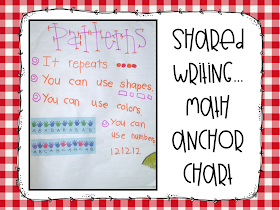 Patterns
It repeats
You can use shapes.
You can use colors
You can
use numbers
121212
Shared
Writing...
Math
Anchor
Chart